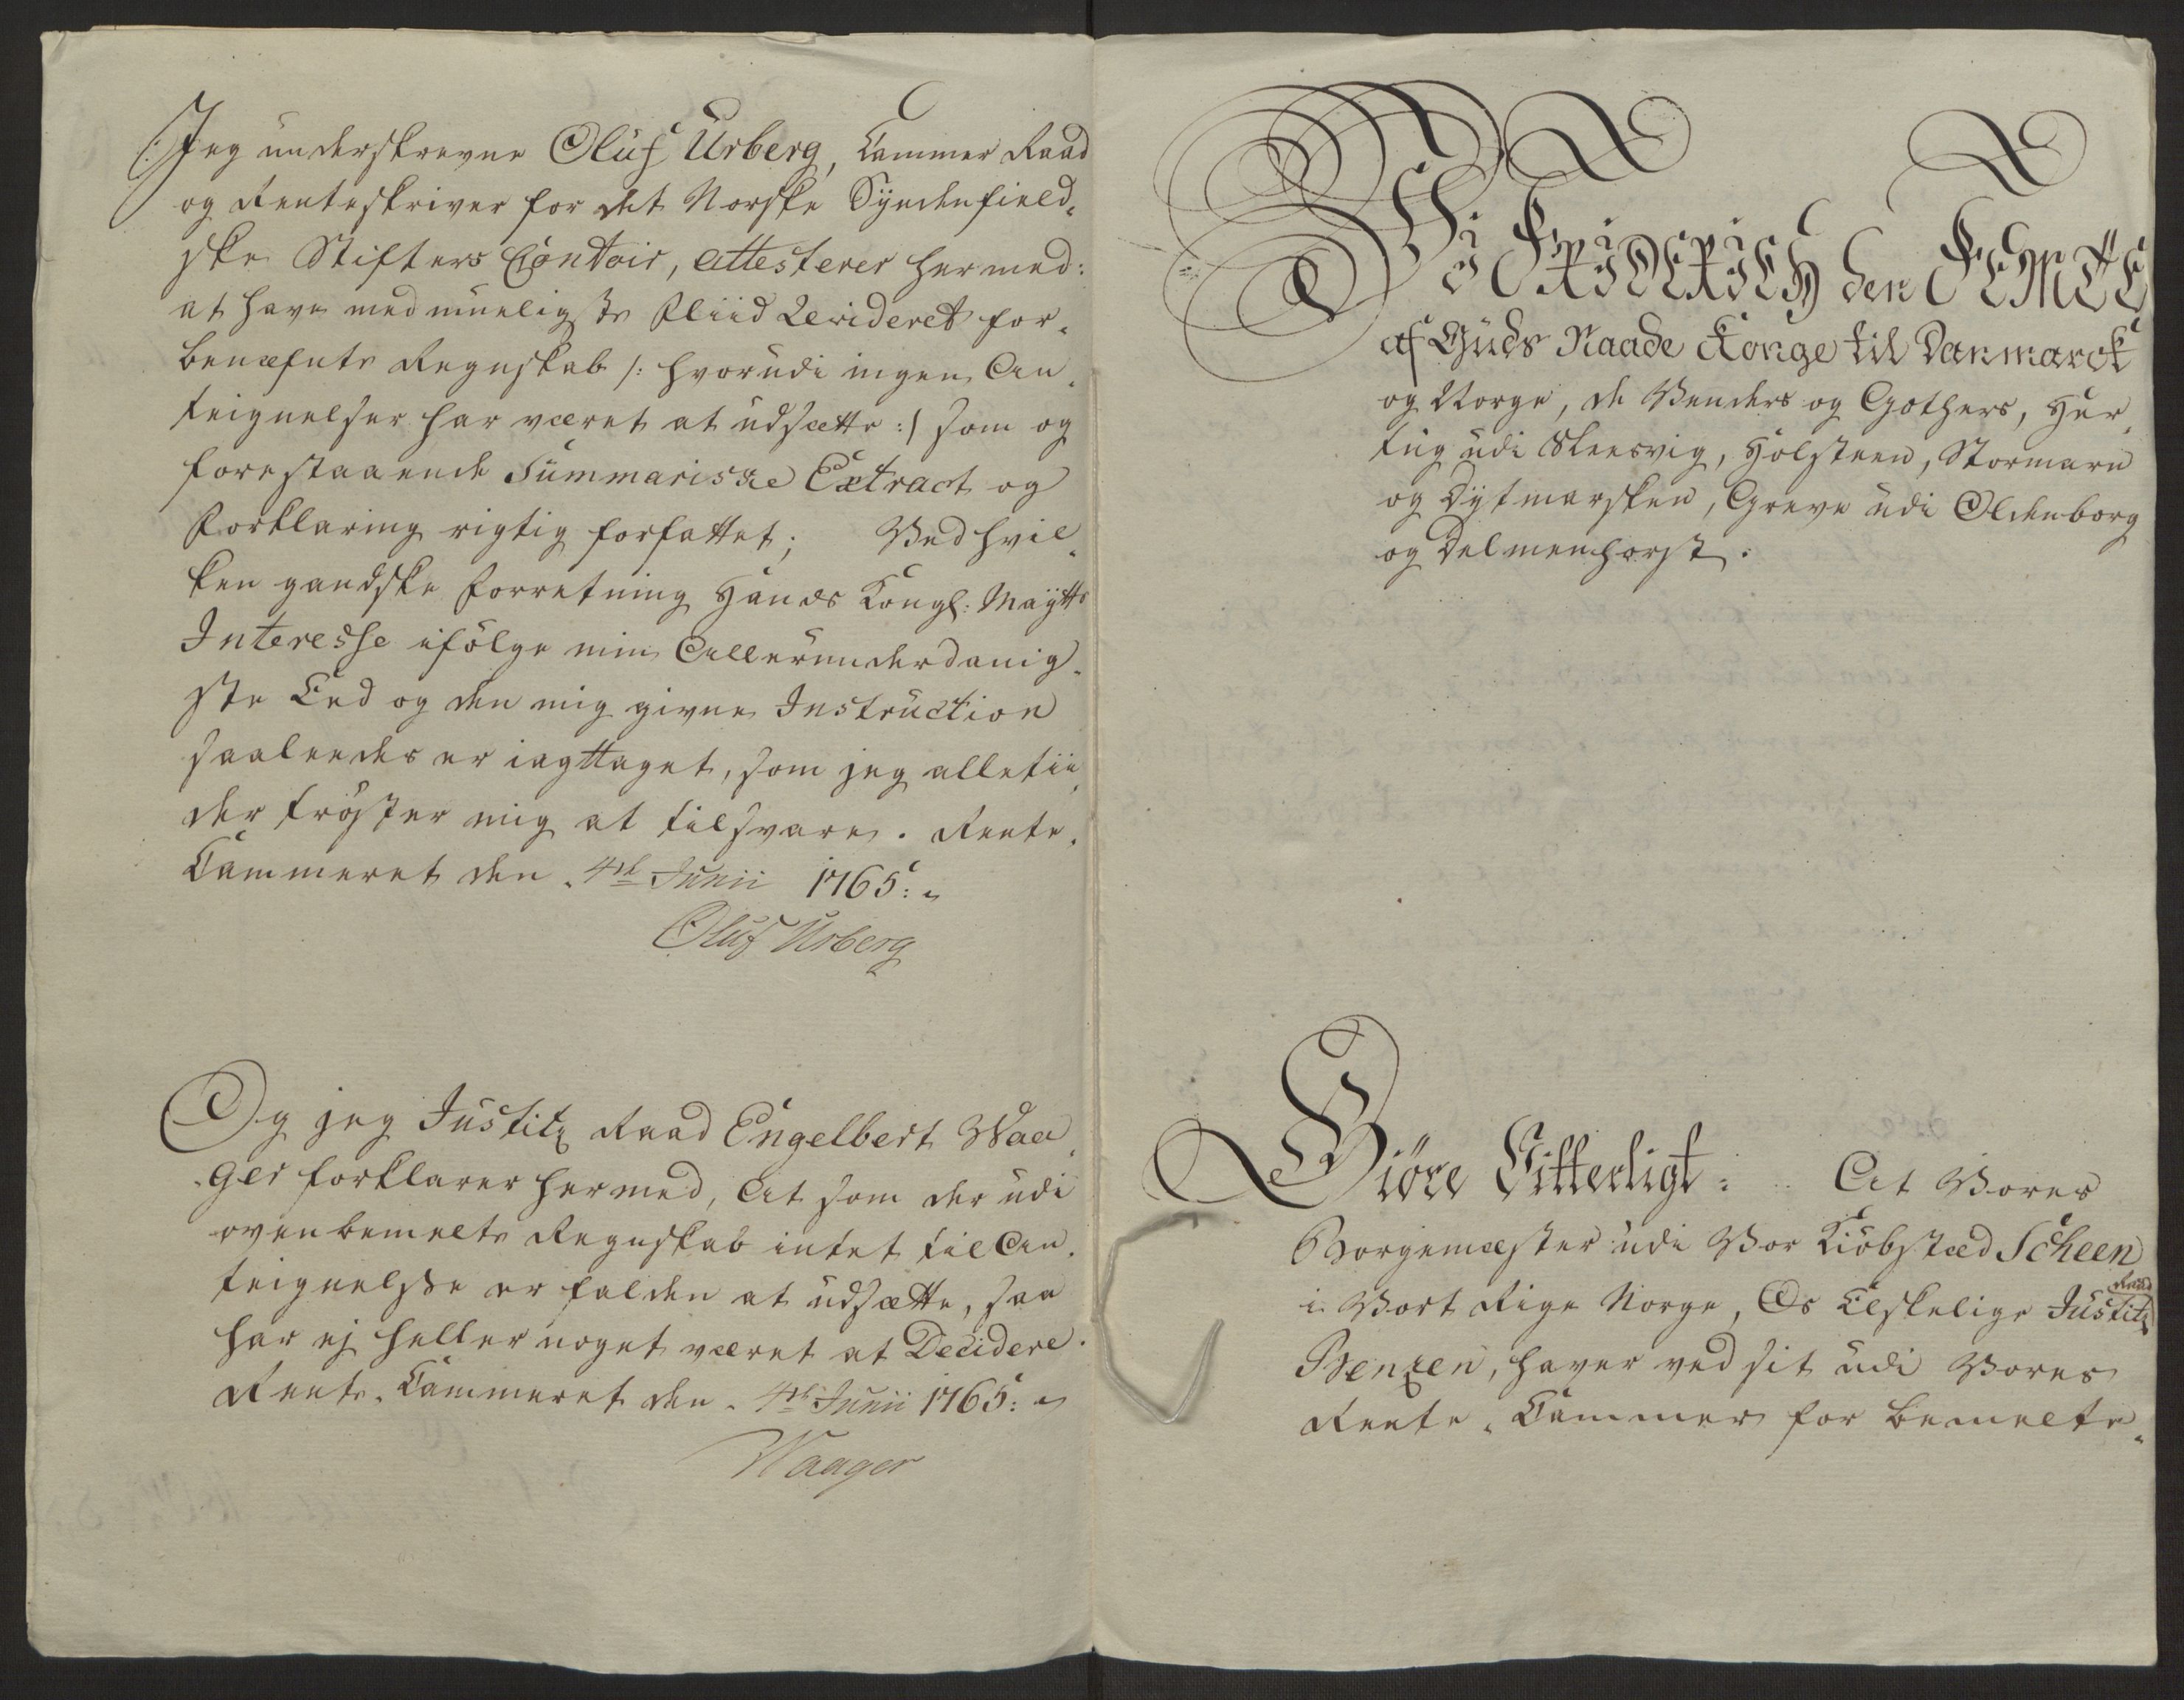 Jeg underskrevne Oluf Urberg, Cammer Raad
og Renteskriver for det Norske Syndenfield-
ske Stifters Contoir, attesterer hermed:
at have med mueligste Fliid Revideret for-
benæfnte Regnskab /: hvorudi ingen An-
teignelser har været at udsætte :/ som og
forestaaende Summariske Extract og
Forklaring rigtig forfattet; Ved hvil-
ken gandske Forretning Hands Kongl: Maytts
Interesse ifölge min Allerunderdanig-
ste Eed og den mig givne Instruction
saaleedes er iagttaget, som jeg alletii-
der tröster mig at tilsvare. Rente-
Cammeret den 4de Junii 1765:
Oluf Urberg
Og jeg Justitz Raad Engelbert Waa-
ger forklarer hermed, At som der udi
ovenbemelte Regnskab intet til An-
teignelse er falden at udsætte, saa
har ej heller noget været at Decidere.
Rente-Cammeret den 4de Junii 1765:
Waager
Wi FRIDERICH den FEMTE
af Guds Naade Konge til Danmarck
og Norge, de Venders og Gothers, Her-
tug udi Sleesvig, Holsteen, Stormarn
og Dytmersken, Greve udi Oldenborg
og Delmenhorst.
Giöre Vitterligt: At Vores
Borgemæster udi Vor Kiöbstæd Scheen
i Vort Rige Norge, Os Elskelige Justitz Raad
Bentzen, haver ved sit udi Vores
Rente-Cammer for bemelte